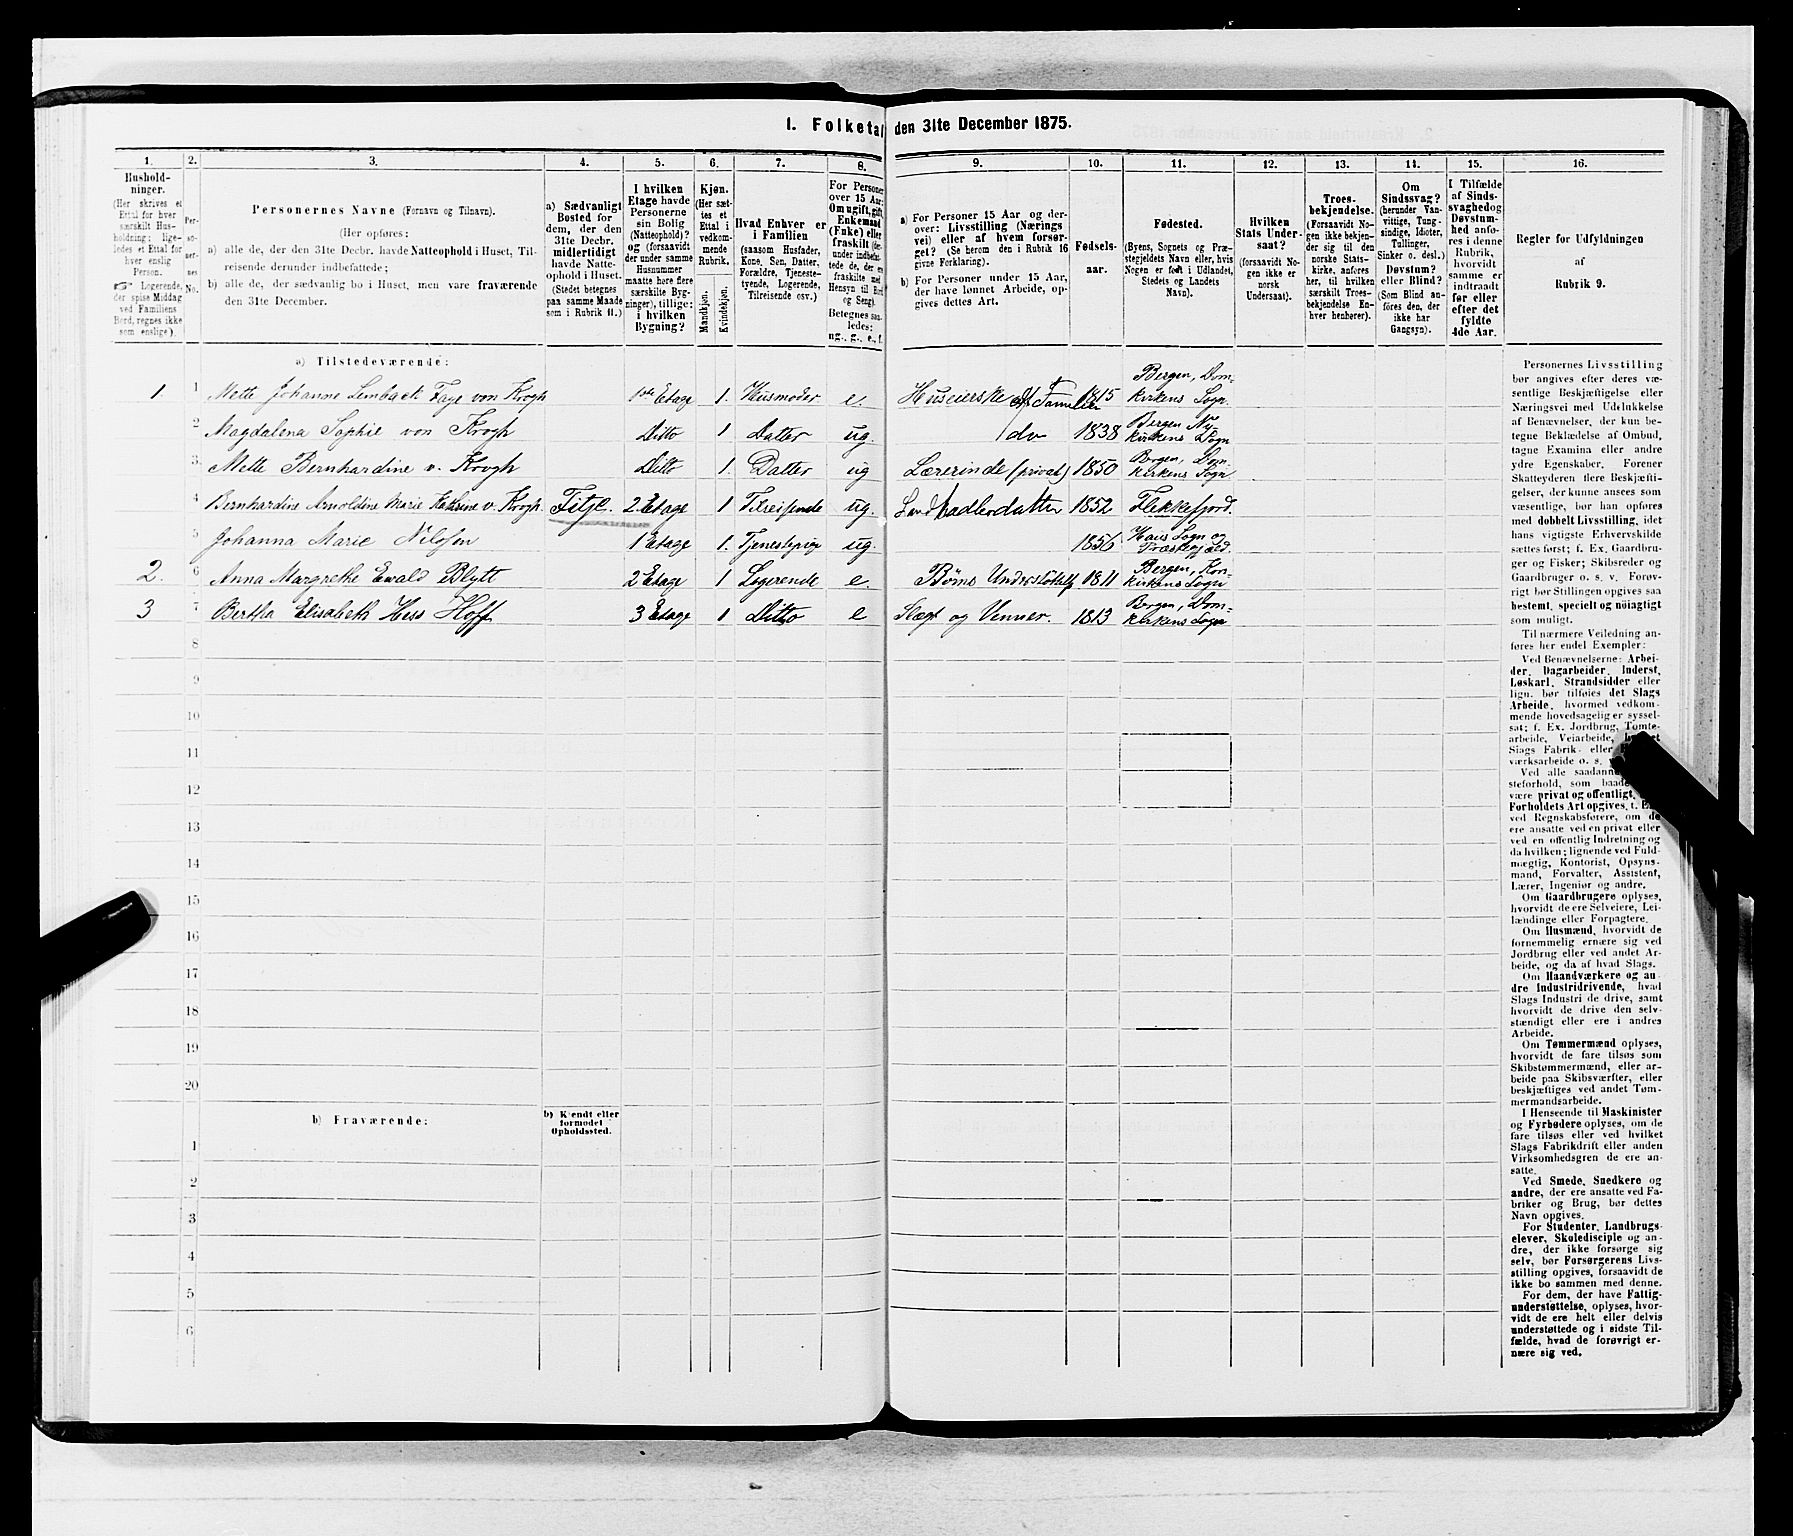 1. Folketal den 31te December 1875.
1. 2. 3. 4. 5. 6. 7. 8. 9. 10. 11. 12. 13. 14. 15. 16.
Hushold-
ninger.
(Her skrives et
Ettal for hver
særskilt Hus-
holdning; lige-
ledes et Ettal for
hver enslig
Person.
Logerende,
der spise Middag
ved Familiens
Bord, regnes ikke
som enslige).
Per-
so-
ner-
nes
No.
Personernes Navne (Fornavn og Tilnavn).
(Her opføres:
a) alle de, der den 31te Decbr. havde Natteophold i Huset, Til-
reisende derunder indbefattede;
b) alle de, der sædvanlig bo i Huset, men vare fraværende
den 31te December.
a) Sædvanligt
Bosted for
dem, der den
31te Decbr.
midlertidigt
havde Natte-
ophold i Huset.
(Stedet betegnes
paa samme Maade
som i Rubrik 11.)
I hvilken
Etage havde
Personerne
sin Bolig
(Natteophold)?
og (forsaavidt
der under samme
Husnummer
maatte høre flere
særskilte Byg-
ninger), tillige:
i hvilken
Bygning?
Kjøn.
(Her sæt-
tes et
Ettal i
vedkom-
mende
Rubrik.
Mandkjøn.
Kvindekjøn.
Hvad Enhver er
i Familien
(saasom Husfader,
Kone, Søn, Datter,
Forældre, Tjeneste-
tyende, Logerende,
Tilreisende osv.)
For Personer
over 15 Aar:
Om ugift, gift,
Enkemand
(Enke) eller
fraskilt (der-
under indbefat-
tede de, der ere
fraskilte med
Hensyn til Bord
og Seng).
Betegnes saa-
ledes:
ug., g., e., f.
a) For Personer 15 Aar og der-
over: Livsstilling (Nærings
vei) eller af hvem forsør-
get? (Se herom den i Rubrik 16
givne Forklaring).
b) For Personer under 15 Aar,
der have lønnet Arbeide, op-
gives dettes Art.
Fødsels-
aar.
Fødested.
(Byens, Sognets og Præ-
stegjeldets Navn eller, hvis
Nogen er født i Udlandet,
Stedets og Landets
Navn).
Hvilken
Stats Under-
saat?
(forsaavidt No-
gen ikke er
norsk
Undersaat).
Troes-
bekjendelse.
(Forsaavidt No-
gen ikke bekjen-
der sig til den
norske Stats-
kirke, anføres
her, til hvilken
særskilt Troes-
bekjendelse En-
hver henhører).
Om
Sindssvag?
(herunder Van-
vittige, Tung-
sindige, Idioter,
Tullinger,
Sinker o. desl.)
Døvstum?
eller Blind?
(Som Blind an-
føres den, der
ikke har
Gangsyn).
I Tilfælde
af Sinds-
svaghed og
Døvstum-
hed anfø-
res i denne
Rubrik,
hvorvidt
samme er
indtraadt
før eller
efter det
fyldte
4de Aar.
Regler for Udfyldningen
af
Rubrik 9.
a) Tilstedeværende:
1. 1 Mette Johanne Lembach Faye von Krogh 1ste Etage 1. Husmoder e. Huseierske af Familien 1815 Bergen, Dom-
kirkens Sogn.
2 Magdalena Sophie von Krogh Ditto 1 Datter ug. do 1838 Bergen Ny-
kirkens Sogn
3 Mette Bernhardine v. Krogh Ditto 1. Datter ug Lærerinde (privat) 1850 Bergen, Dom-
kirkens Sogn
4 Bernhardine Arnoldine Marie Kathrine v. Krogh. Fitje. 2 Etage 1 Tilreisende ug. Landhadlerdatter 1852 Flekkefjord.
5 Johanna Marie Nilsen 1 Etage 1. Tjenestepige ug. 1856 Haus Sogn og
Præstegjæld.
2. 6 Anna Margrethe Ewald Blytt 2 Etage 1 Logerende e Børns Understøttelse 1811 Bergen, Kors-
kirkens Sogn
3 7 Bertha Elisabeth Hess Hoff 3 Etage 1 Ditto e Slægt og Venner. 1813 Bergen, Dom-
kirkens Sogn
8
9
10
11
12
13
14
15
16
17
18
19
20
b) Fraværende:
b) Kjendt eller
formodet
Opholdssted.
1
2
3
4
5
6
Personernes Livsstilling
bør angives efter deres væ-
sentlige Beskjæftigelse eller
Næringsvei med Udelukkelse
af Benævnelser, der kun be-
tegne Beklædelse af Ombud,
tagne Examina eller andre
ydre Egenskaber. Forener
Skatteyderen flere Beskjæfti-
gelser, der kunne ansees som
væsentlige, bør han opføres
med dobbelt Livsstilling, idet
hans vigtigste Erhvervskilde
sættes først; f. Ex. Gaardbru-
ger og Fisker; Skibsreder og
Gaardbruger o. s. v. Forøv-
rigt bør Stillingen opgives saa
bestemt, specielt og nøiagtigt
som muligt.
Til nærmere Veiledning an-
føres her endel Exempler:
Ved Benævnelserne: Arbei-
der, Dagarbeider, Inderst,
Løskarl, Strandsidder eller
lign. bør tilføies det Slags
Arbeide, hvormed vedkom-
mende hovedsagelig er syssel-
sat; f. Ex. Jordbrug, Tomte-
arbeide, Veiarbeide,
Slags Fabrik- eller
værksarbeide o. s.
Ved alle saadanne
steforhold, som
være privat og offentligt,
Forholdets Art opgives, t. Ex.
ved Regnskabsførere, om de
ere ansatte ved en privat eller
ved en offentlig Indretning og
da hvilken; lignende ved Fuld-
mægtig, Kontorist, Opsyns-
mand, Forvalter, Assistent,
Lærer, Ingeniør og andre.
Om Gaardbrugere oplyses,
hvorvidt de ere Selveiere, Lei-
lændinge eller Forpagtere.
Om Husmænd, hvorvidt de
fornemmelig ernære sig ved
Jordbrug eller ved andet Ar-
beide, og da af hvad Slags.
Om Haandværkere og an-
dre Industridrivende, hvad
Slags Industri de drive, samt
hvorvidt de drive den selv-
stændigt eller ere i andres
Arbeide.
Om Tømmermænd oplyses,
hvorvidt de fare tilsøs som
Skibstømmermænd, eller ar-
beide paa Skibsværfter, eller
beskjæftiges ved andet Tøm-
mermandsarbeide.
I Henseende til Maskinister
og Fyrbødere oplyses, om de
fare tilsøs eller ved hvilket
Slags Fabrikdrift eller anden
Virksomhedsgren de ere an-
satte.
Ved Smede, Snedkere og
andre, der ere ansatte ved Fa-
briker og Brug, bør dettes
Navn opgives.
For Studenter, Landbrugs-
elever, Skoledisciple og an-
dre, der ikke forsørge sig
selv, bør Forsørgerens Livs-
stilling opgives, forsaavidt de
ikke bo sammen med denne.
For dem, der have Fattig-
understøttelse, oplyses, hvor-
vidt de ere helt eller delvis
understøttede og i sidste Til-
fælde, hvad de forøvrigt er-
nære sig ved.